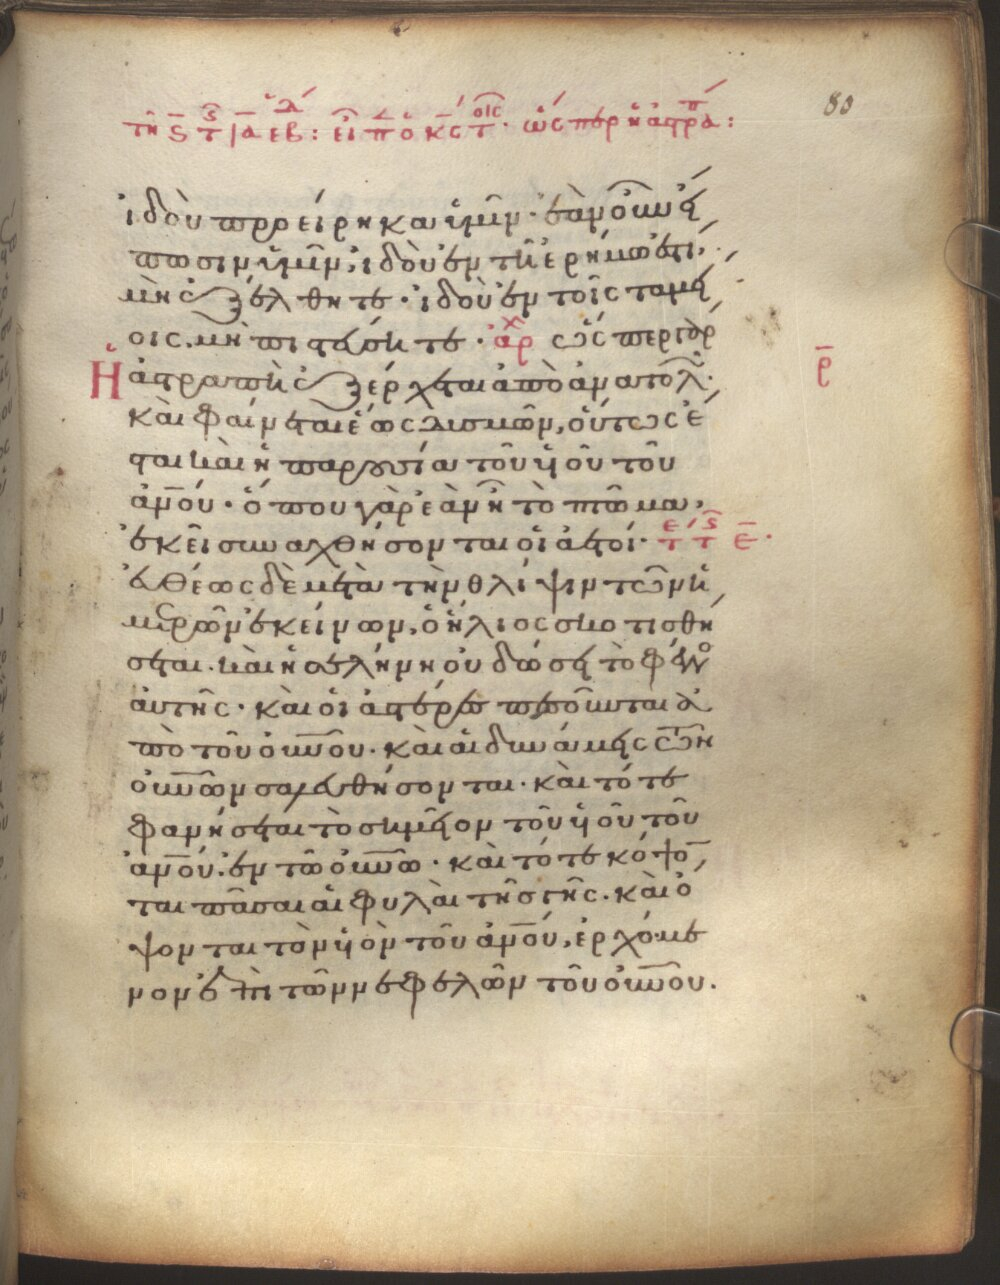 τῇ ϛ τ ιδ εβδ : εἶ π ὁ κς τοις · ὥσπερ ἡ ἀστραπ :
80
ἰδοὺ προείρηκα ὑμῖν · ἐὰν οὖν εἴ
πωσιν ὑμῖν, ἰδοὺ ἐν τῇ ἐρήμω ἐστί,
μὴ ἐξέλθητε · ἰδοὺ ἐν τοῖς ταμεί
οις, μὴ πιστεύσητε · ἀρχ ὥσπερ γὰρ
ἡ ἀστραπὴ ἐξέρχεται ἀπὸ ἀνατολ
καὶ φαίνεται ἕως δυσμῶν, οὕτως ἔ
σται καὶ ἡ παρουσία τοῦ υἱοῦ τοῦ
ἀνου · ὅπου γὰρ ἐὰν ῇ τὸ πτῶμα,
ἐκεῖ συναχθήσονται οἱ ἀετοί · τε τς ε ·
εὐθέως δὲ μετὰ τὴν θλίψιν τῶν ἡ
μερῶν ἐκείνων, ὁ ἥλιος σκοτισθή
σεται · καὶ ἡ σελήνη οὐ δώσει τὸ φέγγο
αὐτῆς · καὶ οἱ ἀστέρες πεσοῦνται ἀ
πὸ τοῦ οὐνου · καὶ αἱ δυνάμεις τῶν
οὐνῶν σαλευθήσονται · καὶ τότε
φανήσεται τὸ σημεῖον τοῦ υἱοῦ τοῦ
ἀνου · ἐν τῶ οὐνῶ · καὶ τότε κόψο
ται πᾶσαι αἱ φυλαὶ τῆς γῆς · καὶ ὄ
ψονται τὸν υἱὸν τοῦ ἀνου, ἐρχόμε
νον ἐπὶ τῶν νεφελῶν τοῦ οὐνου ·